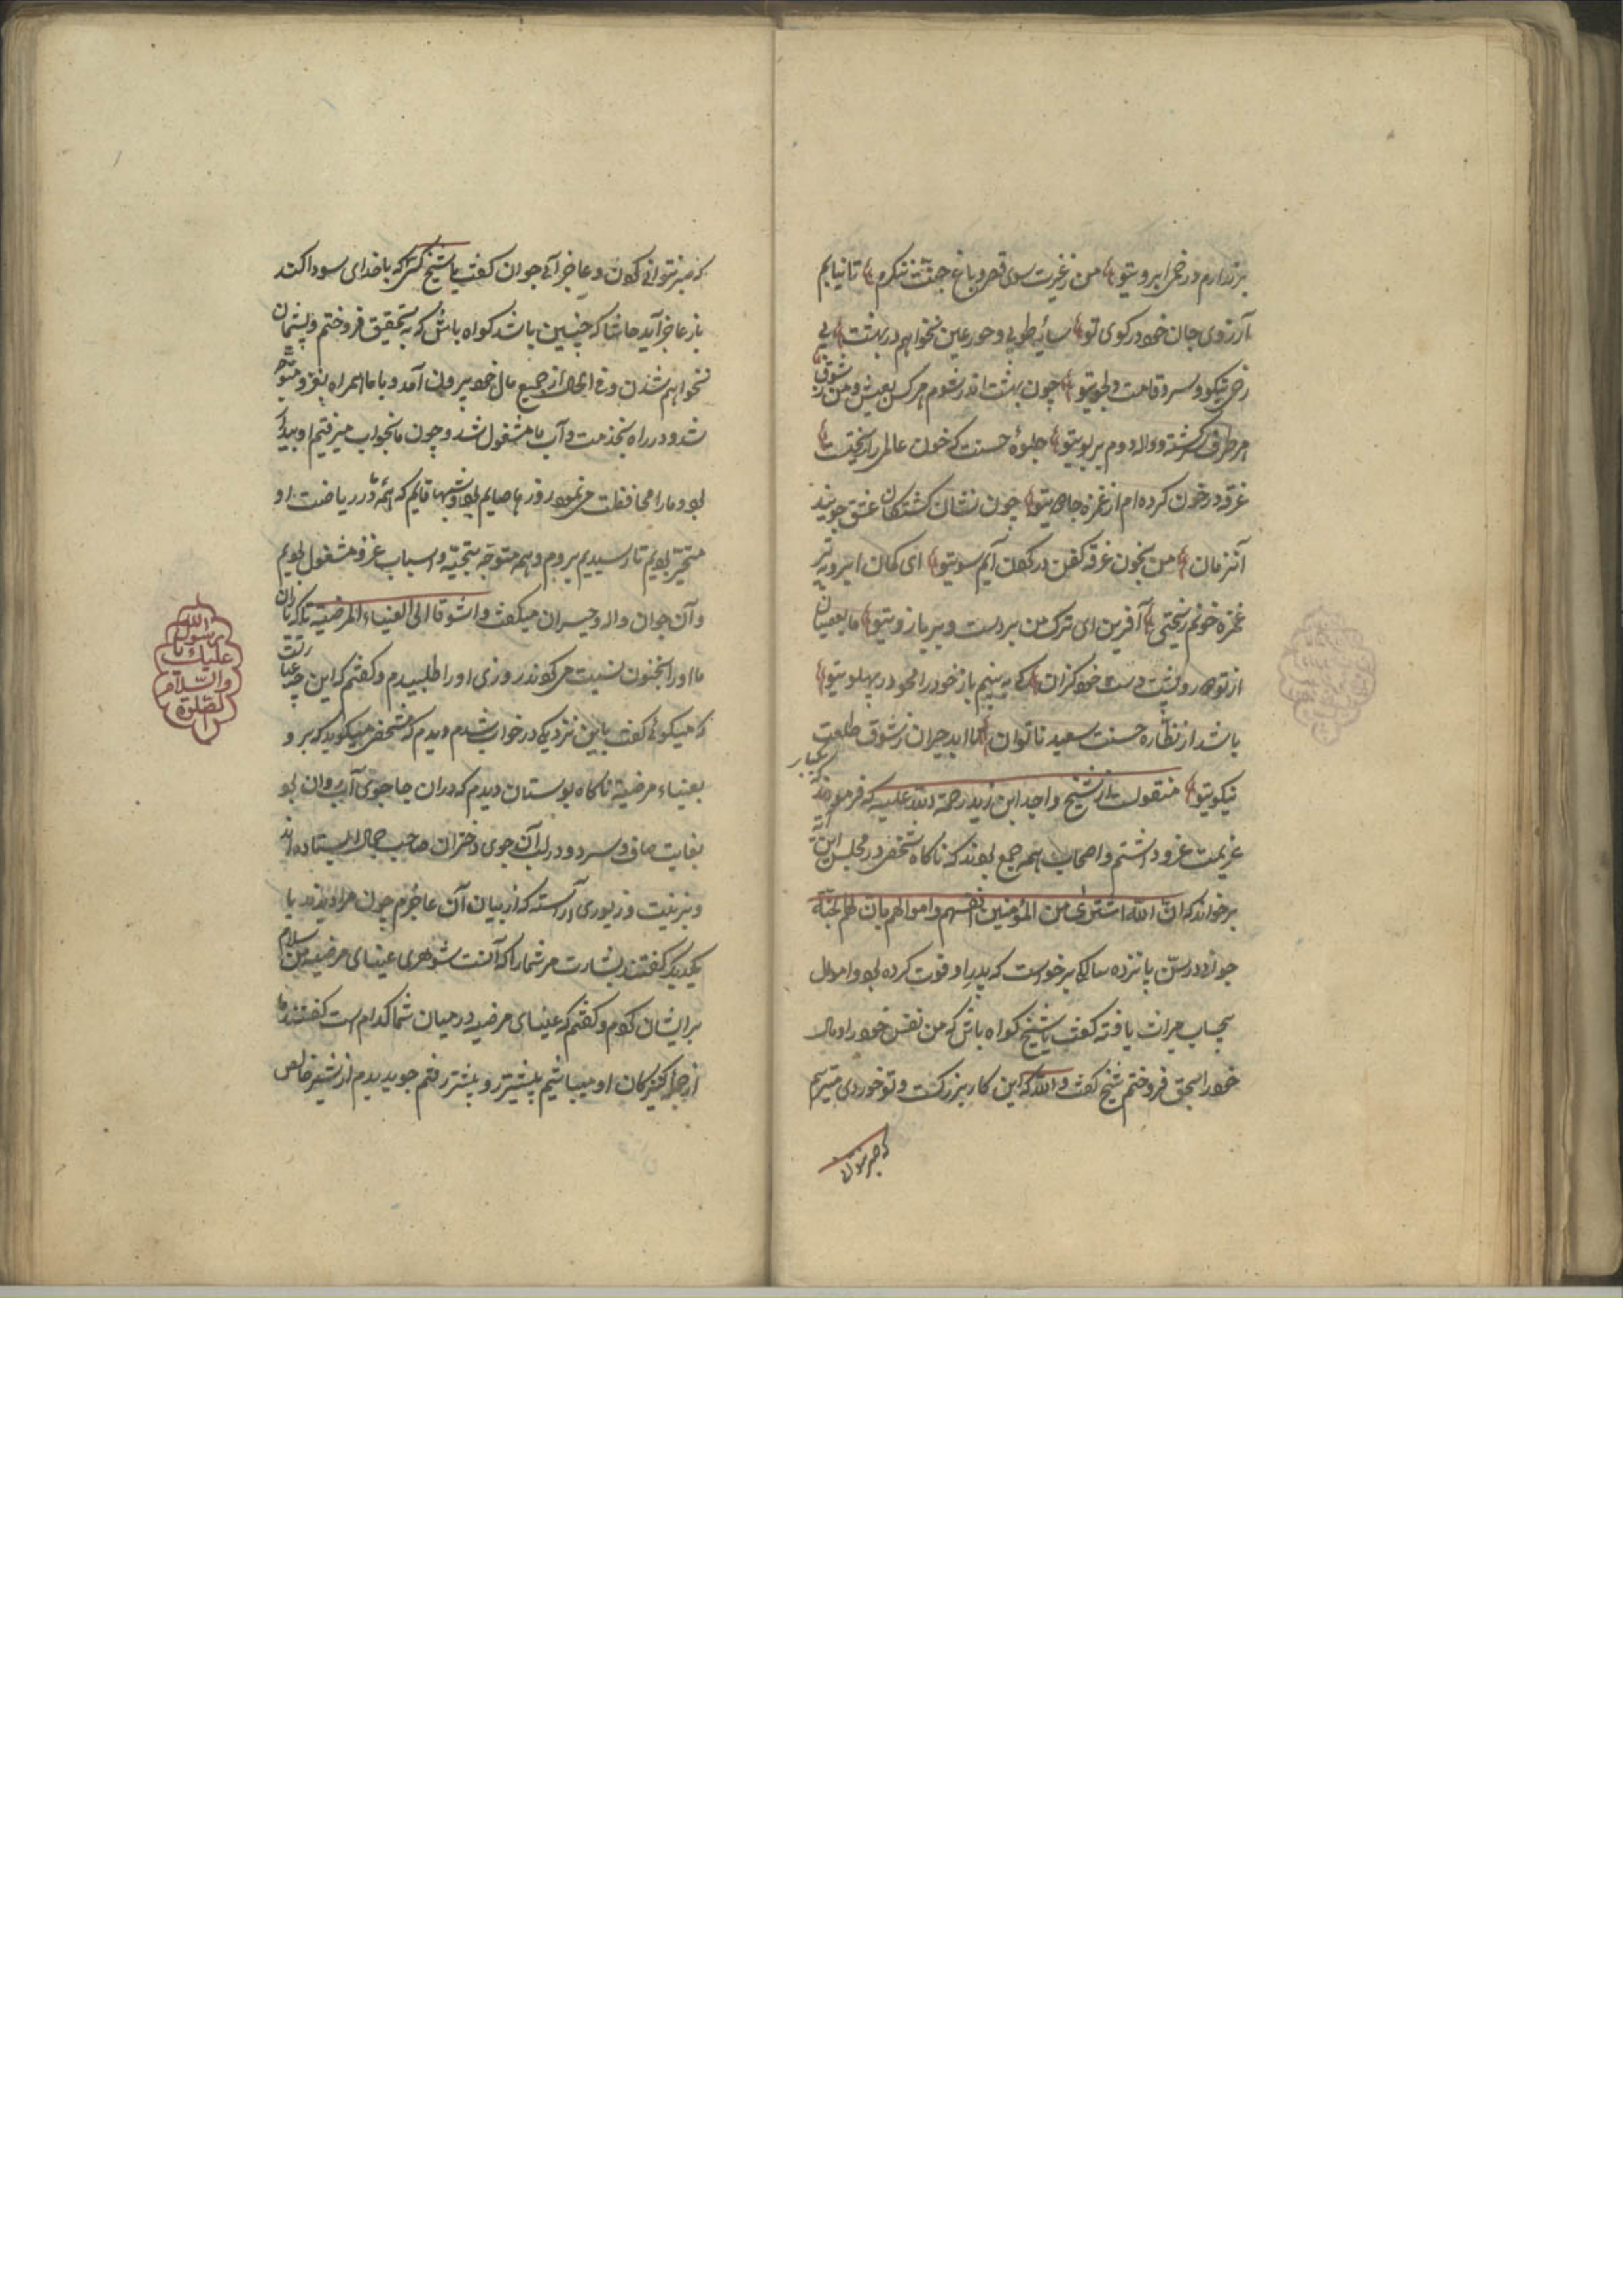 برندارم در خم ابروی تو من ز غیرت سوی قصر و باغ جنت ننگرم تا نیابم
آرزوی جان خود در کوی تو سایهٔ طوبی و حور عین نخواهم در بهشت بی
رخ نیکو و سرو قامت دلجوی تو چون بهشت اندر شوم هر کس بعیش و من ز شوق
هر طرف سرگشته و واله دوم بر بوی تو جلوهٔ حسنت که خون عالمی را ریخت
غرقه در خون کرده‌ام از غمزه جادوی تو چون نشان کشتگان عشق جویند
آنزمان من بخون غرقه کفن در گردن آیم سوی تو ای کمان ابرو به تیر
غمزه خونم ریختی آفرین ای ترک من بر دست و بر بازوی تو ما بعصیان
از تو دور و نیست دست خود کزان که به بینم باز خود را خود در پهلوی تو
باشد از نظاره حسنت سعید ناتوان تا ابد حیران ز شوق طلعت
نیکوی تو منقولست از شیخ واحد ابن زید رحمة الله علیه که فرمود که یکبار
عزیمت غزو داشتم و اصحاب همه جمع بودند که ناگاه شخصی در مجلس این آیة
برخواند که ان الله اشتری من المؤمنین انفسهم واموالهم بان لهم الجنة
جوانی در سن پانزده سالگی برخواست که پدر او فوت کرده بود و اموال
بحساب میراث یافته گفت یا شیخ گواه باش که من نفس خود را و مال
خود را بحق فروختم شیخ گفت والله که این کار بزرگست و تو خوردی میترسم
که صبر نتوانی
که صبر نتوانی کردن و عاجز آئی جوان گفت یا شیخ کسی که با خدای سودا کند
باز عاجز آید حاشا که چنین باشد گواه باش که به تحقیق فروختم و پشیمان
نخواهم شدن و فی الحال از جمیع مال خود بیرون آمد و با ما همراه بغزو متوجه
شد و در راه بخدمت دآب ما مشغول شد و چون ما بخواب میرفتیم او بیدار
بود و ما را محافظت می‌نمود روزها صایم بود و شبها قایم که همه در ریاضت او
متحیر بودیم تا رسیدیم بروم و همه متوجه بتجیه و اسباب غزو مشغول بودیم
و آن جوان واله و حیران میگفت واشوقا الی العیناء المرضیة تا که یاران
ما او را بجنون نسبت می‌کردند روزی او را طلبیدم و گفتم که این چه عبارتست
که میگوئی گفت باین نزدیکی در خواب شدم دیدم که شخصی میگوید که برو
بعیناء مرضیة ناگاه بوستان دیدم که دران جا جوی آب روان بود
بغایت صاف و سرد و در لب آن جوی دختران صاحب جمال ایستاده‌اند
و بزینت و زیوری آراسته که از بیان آن عاجزم چون مرا دیدند با
یکدیگر گفتند بشارت مر شما را که آنست شوهری عینای مرضیه من سلام
برایشان کردم و گفتم که عینای مرضیه در میان شما کدام است گفتند ما
از جمله کنیزکان او میباشیم پیشتر رو پیشتر رفتم جوی دیدم از شیر خالص
الصلوة
والسلام
عليك يا
رسول
الله